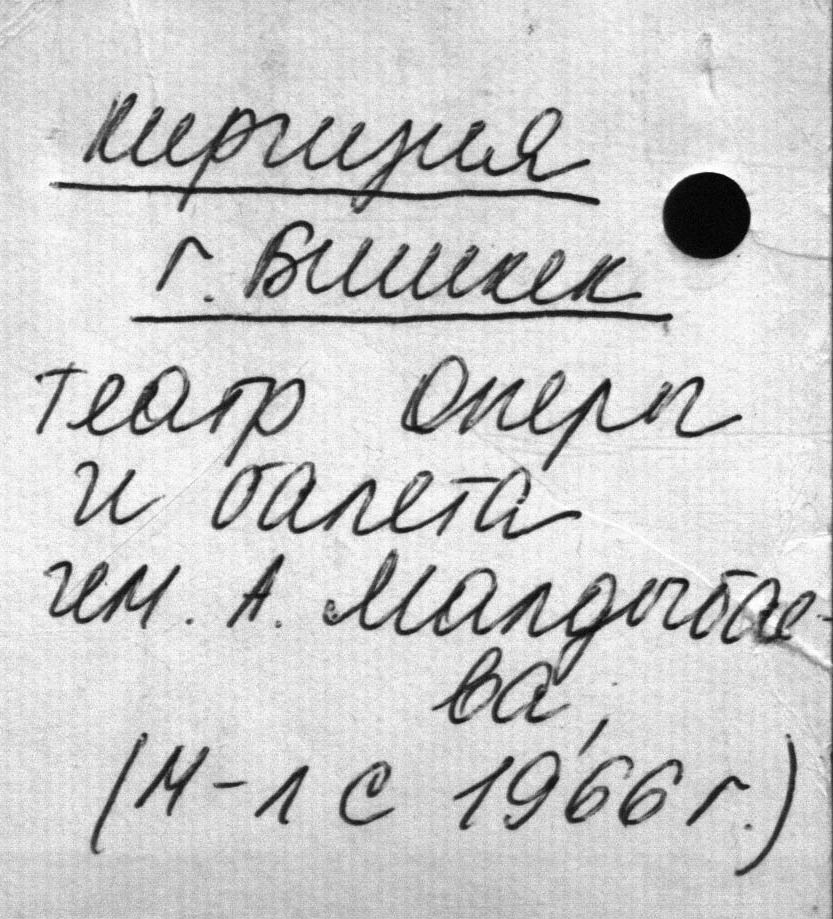 Киргизия
г. Бишкек
театр Оперы
и балета
им. А. Малдыбае-
ва,
(М-л с 1966 г.)